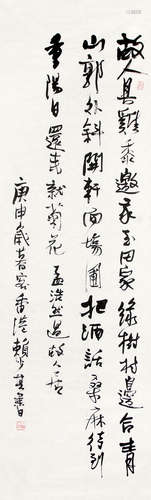 故人具雞黍邀我至田家綠樹村邊合青
山郭外斜開軒面場圃把酒話桑麻待到
重陽日還來就菊花 孟浩然過故人莊
庚申歲暮客香港賴少其書